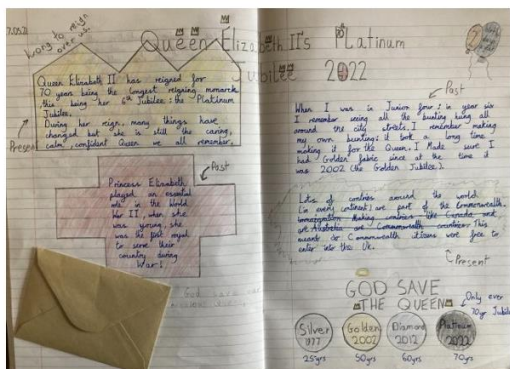 7.05.21
Long to reign
over us
Queen Elizabeth II's Platinum
Jubilee 2022
Queen Elizabeth II has reigned for
70 years being the longest reigning monarch
this being her 6th Jubilee: the Platinum
Jubilee.
During her reign, many things have
changed but she is still the caring,
calm, confident Queen we all remember.
Present
Past
Princess Elizabeth
played an essential
role in the World
War II, when she
was young, she
was the first royal
to serve their
country during
War 1.
Past
When I was in Junior four: in year six
I remember seeing all the bunting hung all
around the city streets. I remember making
my own bunting: it took a long time
making it for the Queen. I Made sure I
had Golden fabric since at the time it
was 2002 (the Golden Jubilee).
Lots of contries around the world
(in every continent) are part of the Commonwealth.
Making countries like Canada and
Australia are Commonwealth countries. This
meant citizens were free to
enter into the UK.
Present
GOD SAVE
THE QUEEN
Only ever
70yr Jubilee
Silver
1977
Golden
2002
Diamond
2012
Platinum
2022
25yrs
50yrs
60yrs
70yrs